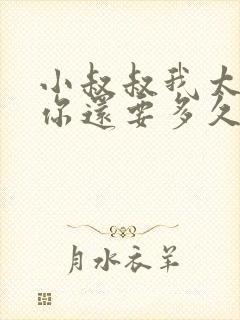 小叔叔我太
你還要多久
月水衣羊